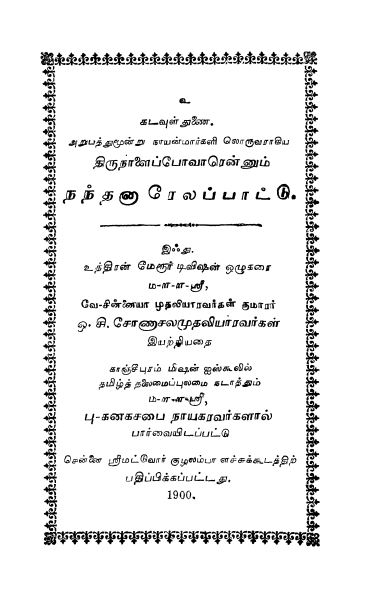 உ
கடவுள் துணை.
அறுபத்துமூன்று நாயன்மார்களி லொருவராகிய
திருநாளைப்போவாரென்னும்
நந்தனா ரேலப்பாட்டு.
இஃது.
உத்திரன் மேரூர் டிவிஷன் ஒழுகரை
ம-௱-௱-ஸ்ரீ,
வே-சின்னையா முதலியாரவர்கள் குமாரர்
ஒ. சி. சோணாசலமுதலியாரவர்கள்
இயற்றியதை
காஞ்சிபுரம் மிஷன் ஐஸ்கூலில்
தமிழ்த் தலைமைப்புலமை நடாத்தும்
ம-௱-௱-ஸ்ரீ,
பு-கனகசபை நாயகரவர்களால்
பார்வையிடப்பட்டு
சென்னை ஸ்ரீமட்வோர் குழலம்பா ளச்சுக்கூடத்திற்
பதிப்பிக்கப்பட்டது.
1900.